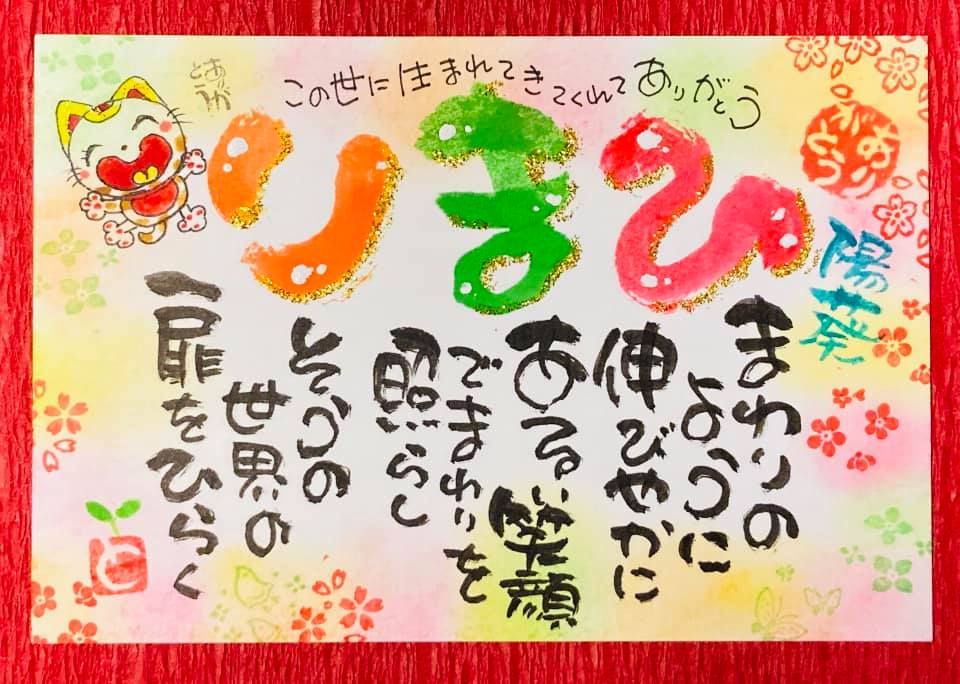 この世に生まれてきてくれてありがとう
ひまり
陽葵
まわりの
ように
伸びやかに
あるい笑顔
でまわりを
照らし
そうの
世界の
扉をひらく